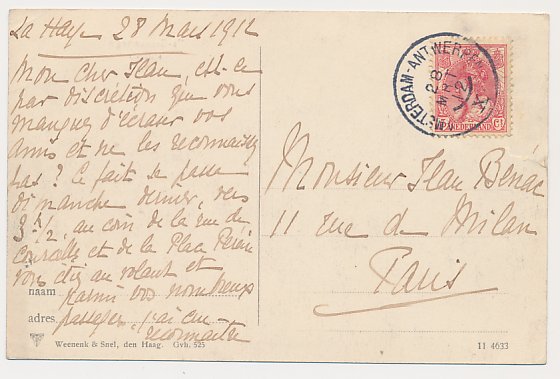 La Haye 28 Mars 1912
Mon cher Jean, est-ce
par discrétion que vous
manquez d'écraser vos
amis et ne les reconnaissez
pas? Ce fait se passe
dimanche dernier, vers
3 1/2, au coin de la rue de
Courcelles et de la Place Pereire
vous étiez au volant et
parmi vos nombreux
passagers, j'ai cru
reconnaître
naam
adres
Weenenk & Snel, den Haag. Gvh. 525
AMSTERDAM-ANTWERPEN
28
MRT
12
NEDERLAND
Monsieur Jean Bénac
11 rue de Milan
Paris
11 4633